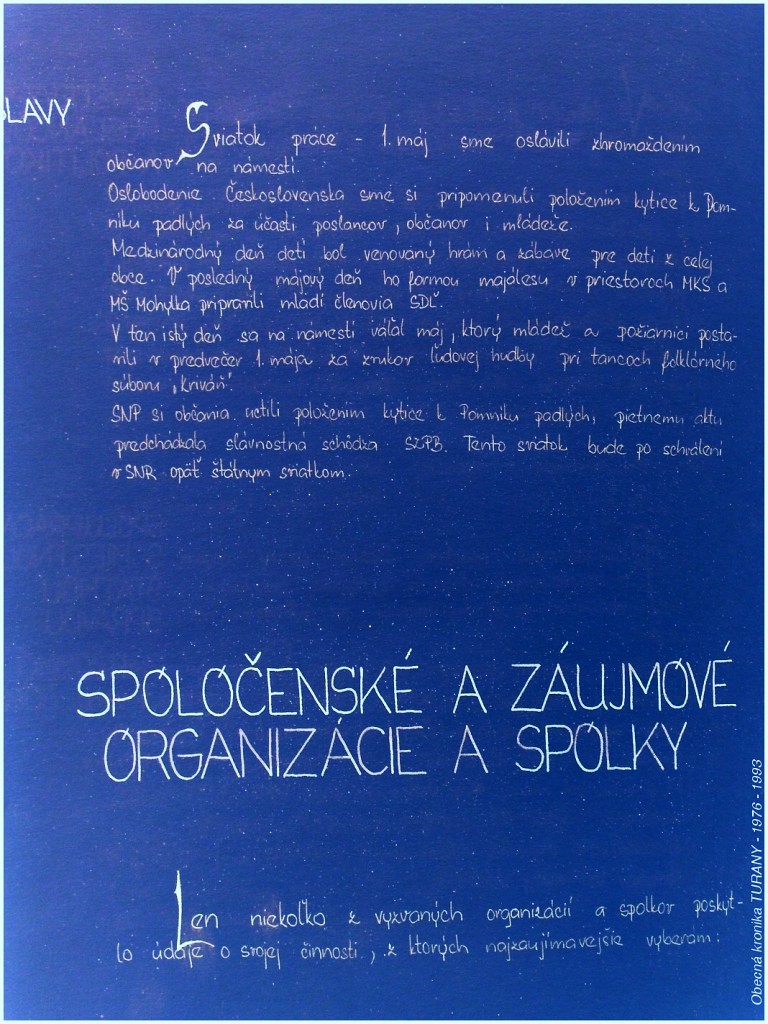 SLAVY
Sviatok práce - 1. máj sme oslávili zhromaždením
občanov na námestí.
Oslobodenie Československa sme si pripomenuli položením kytice k Pom-
niku padlých za účasti poslancov, občanov i mládeže.
Medzinárodný deň detí bol venovaný hrám a zábave pre deti z celej
obce. V posledný májový deň ho formou majálesu v priestoroch MKS a
MŠ Mohylka pripravili mládí členovia SDĽ.
V ten istý deň sa na námestí váľal máj, ktorý mládež a požiarnici posta-
vili v predvečer 1. mája za zvukov ľudovej hudby pri tancoch folklórneho
súboru "Kriváň".
SNP si občania uctili položením kytice k Pomníku padlých, pietnemu aktu
predchádzala slávnostná schôdza SZPB. Tento sviatok bude po schválení
v SNR opäť štátnym sviatkom.
SPOLOČENSKÉ A ZÁUJMOVÉ
ORGANIZÁCIE A SPOLKY
Len niekoľko z vyzvaných organizácií a spolkov poskyt-
lo údaje o svojej činnosti, z ktorých najzaujímavejšie vyberám:
Obecná kronika TURANY - 1976 - 1993